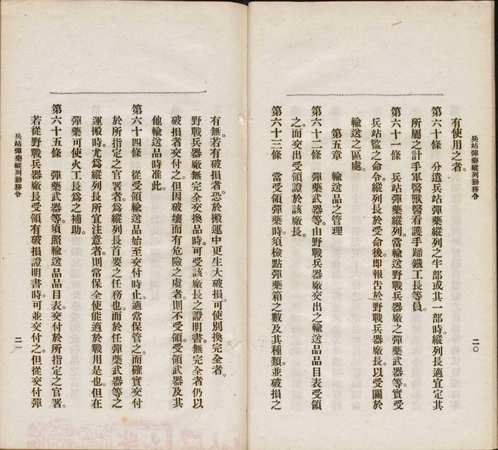 兵站彈藥縱列勤務令
二〇
有使用之者。
第六十條　分遣兵站彈藥縱列之半部或其一部時。縱列長適宜定其
所屬之計手軍醫獸醫看護手蹄鐵工長等員。
第六十一條　兵站彈藥縱列當輸送野戰兵器廠之彈藥武器等。實受
兵站監之命令。縱列長於受命後。即報告於野戰兵器廠長。以受關於
輸送之區處。
第五章　輸送品之管理
第六十二條　彈藥武器等由野戰兵器廠交出之輸送品品目表受領
之。而交出受領證於該廠長。
第六十三條　當受領彈藥時。須檢點彈藥箱之數及其種類。並破損之
有無。若有破損者。恐於搬運中更生大破損。可使別換完全者。
野戰兵器廠無完全交換品時。可受該廠長之證明書。無完全者仍以
破損者交付之。但因破壞而有危險之虞者。則不受領。受領武器及其
他輸送品時準此。
第六十四條　從受領輸送品始。至交付時止。適當保管之。而確實交付
於所指定之官署者。爲縱列長首要之任務也。而於任彈藥武器等之
運搬時。尤爲縱列長所宜注意者。則當保全使能適於戰用是也。但在
彈藥可使火工長爲之補助。
第六十五條　彈藥武器等。須照輸送品品目表交付於所指定之官署。
若從野戰兵器廠長受領有破損證明書時。可並交付之。但從交付彈
兵站彈藥縱列勤務令
二一